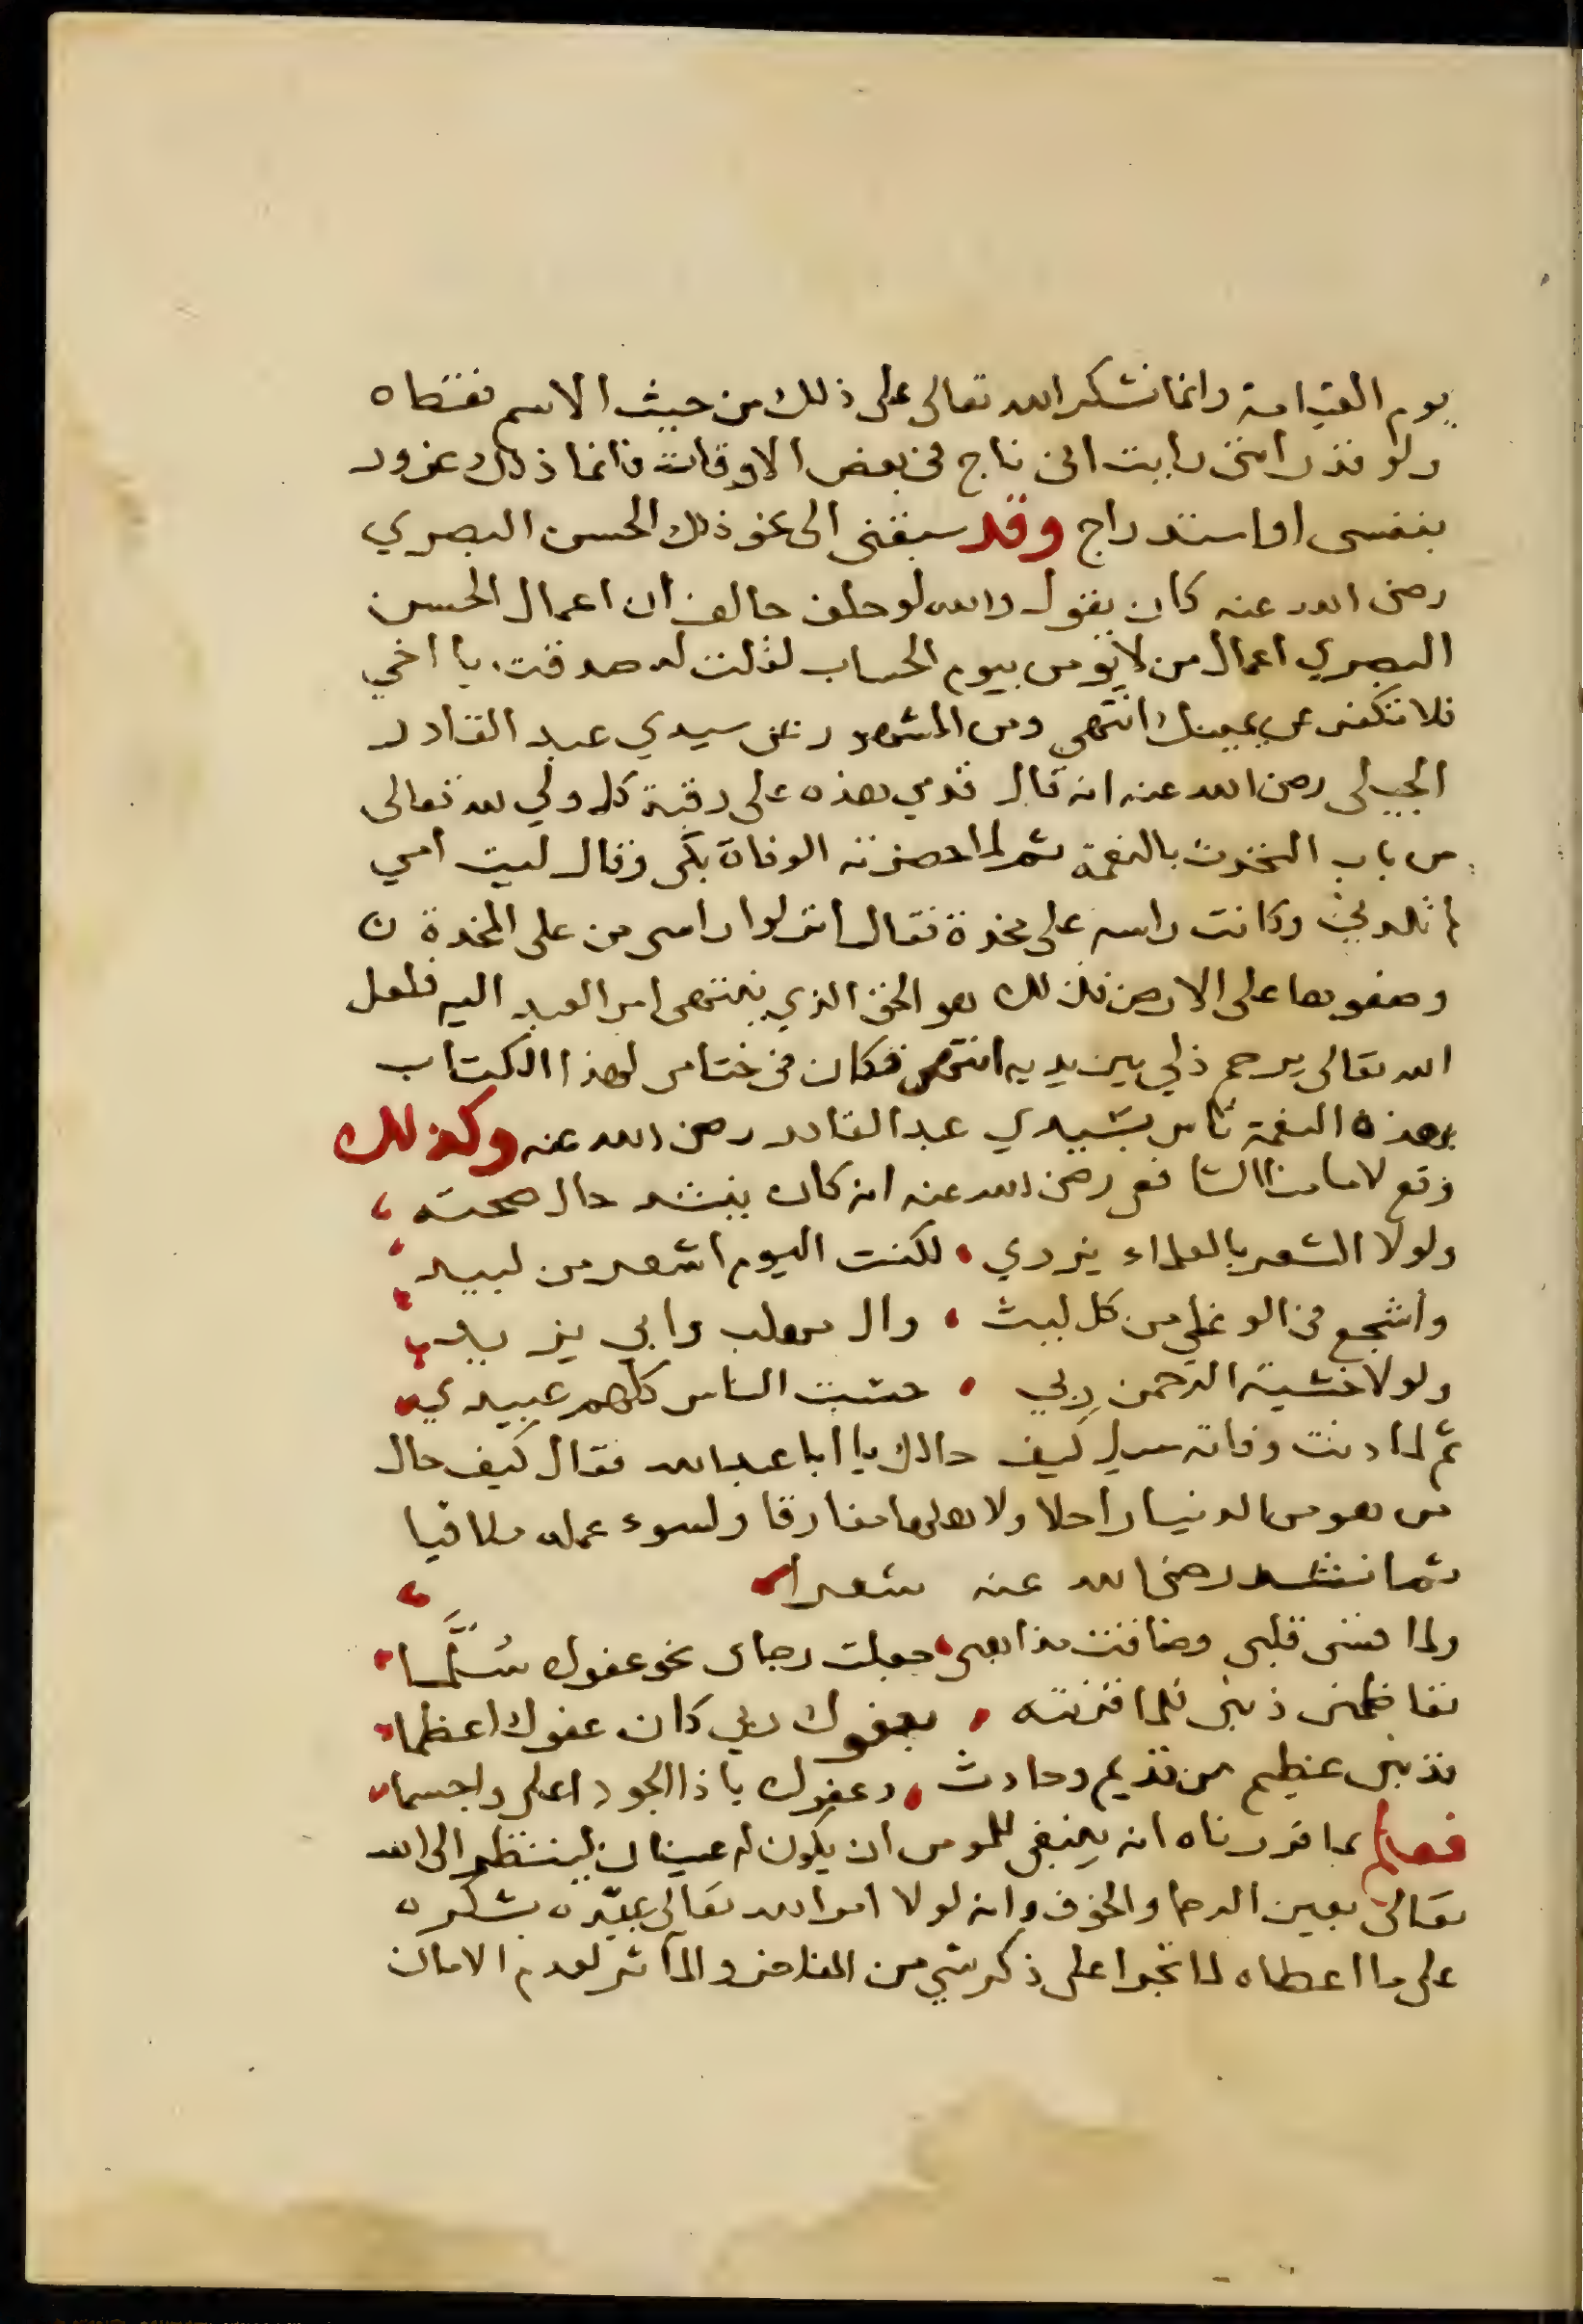 يوم القيامة وانما نشكر الله تعالى على ذلك من حيث الاسم فقط اه
ولو قدر انني رايت اني ناج في بعض الاوقات فانما ذلك غرور
بنفسي او استدراج وقد سبقني الى نحو ذلك الحسن البصري
رضى الله عنه كان يقول والله لو حلف حالف ان اعمال الحسن
البصري اعمال من لا يؤمن بيوم الحساب لقلت له صدقت يا اخي
فلا تكفر عن يمينك انتهى ومن المشهور عن سيدي عبد القادر
الجيلى رضى الله عنه انه قال قدمي هذه على رقبة كل ولي لله تعالى
من باب التحدث بالنعمة ثم لما حضرته الوفاة بكى وقال ليت امي
لم تلدني وكانت راسه على مخدة فقال انزلوا راسى من على المخدة
وضعوها على الارض فذلك هو الحق الذي ينتهى امر العبد اليه فلعل
الله تعالى يرحم ذلي بين يديه انتهى فكان في ختامى لهذا الكتاب
بهذه النعمة تاس بسيدي عبد القادر رضى الله عنه وكذلك
وقع لامامنا الشافعى رضى الله عنه انه كان ينشد حال صحته
ولولا الشعر بالعلماء يزدري لكنت اليوم اشعر من لبيد
وأشجع في الوغى من كل ليث وال مهلب وابي يزيد
ولولا خشية الرحمن ربي حسبت الناس كلهم عبيدي
ثم لما دنت وفاته سيل كيف حالك يا ابا عبد الله فقال كيف حال
من هو من الدنيا راحلا ولاهلها مفارقا ولسوء عمله ملاقيا
ثم انشد رضى الله عنه شعرا
ولما قسى قلبى وضاقت مذاهبى جعلت رجاى نحو عفوك سُلَّما
تعاظمنى ذنبى فلما قرنته بعفوك ربي كان عفوك اعظما
فذنبى عظيم من قديم وحادث وعفوك يا ذا الجود اعلى واجسما
فعلم بما قررناه انه ينبغى للمومن ان يكون له عينان لينظر الى الله
تعالى بعين الرجا والخوف وانه لولا امر الله تعالى عبيده بشكره
على ما اعطاه لما تجرا على ذكر شي من المفاخر والمآثر لعدم الامان